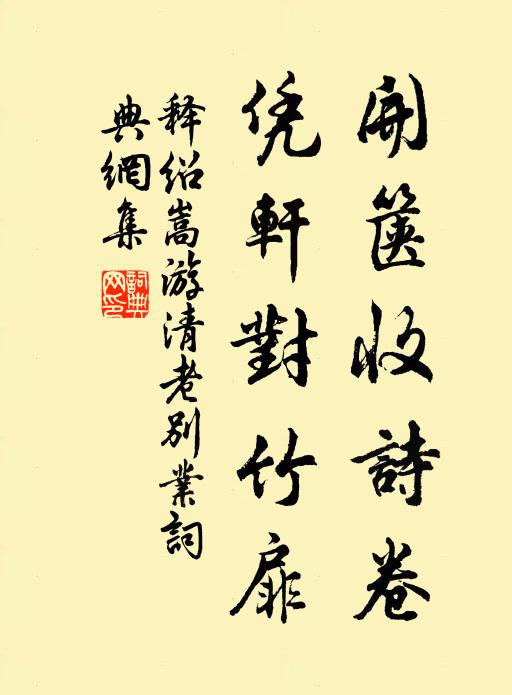 開篋收詩卷
凭軒對竹扉
释紹嵩游清老别業詞
典網集
詞典網印